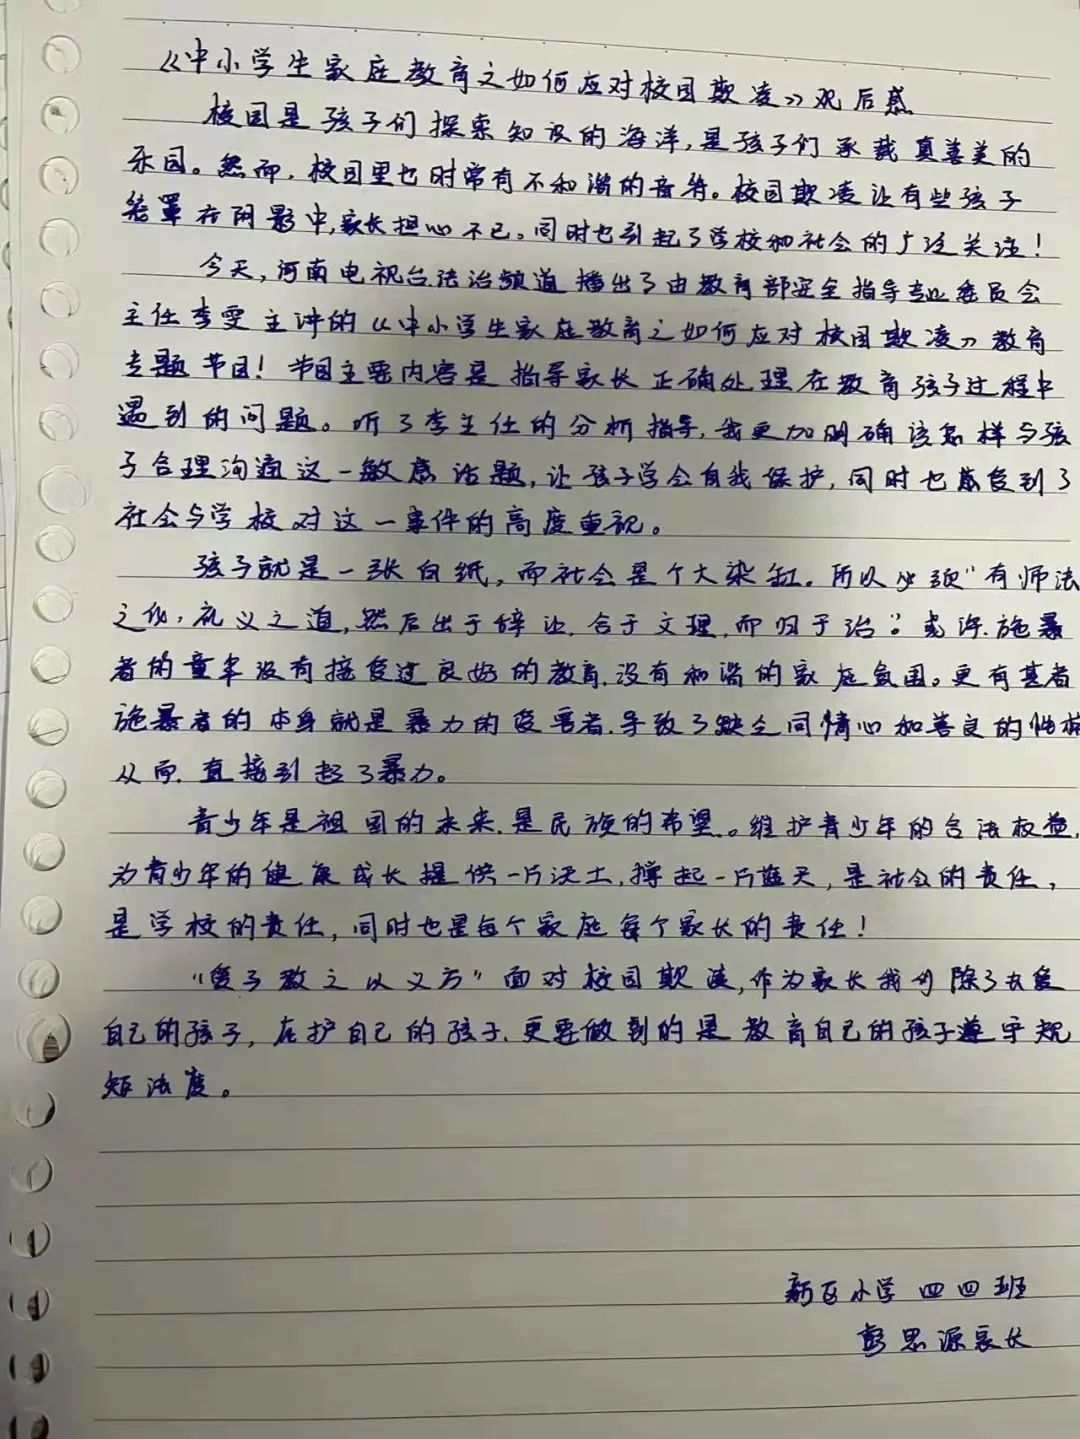 《中小学生家庭教育之如何应对校园欺凌》观后感
校园是孩子们探索知识的海洋,是孩子们承载真善美的
乐园。然而,校园里也时常有不和谐的音符。校园欺凌让有些孩子
笼罩在阴影中,家长担心不已。同时也引起了学校和社会的广泛关注!
今天,河南电视台法治频道播出了由教育部安全指导专业委员会
主任李雯主讲的《中小学生家庭教育之如何应对校园欺凌》教育
专题节目!节目主要内容是指导家长正确处理在教育孩子过程中
遇到的问题。听了李主任的分析指导,我更加明确该怎样与孩
子合理沟通这一敏感话题,让孩子学会自我保护,同时也感受到了
社会与学校对这一事件的高度重视。
孩子就是一张白纸,而社会是个大染缸。所以必须"有师法
之化,礼义之道,然后出于辞让,合于文理,而归于治"。或许,施暴
者的童年没有接受过良好的教育,没有和谐的家庭氛围。更有甚者
施暴者的本身就是暴力的受害者,导致了缺乏同情心和善良的性格
从而,直接引起了暴力。
青少年是祖国的未来,是民族的希望。维护青少年的合法权益,
为青少年的健康成长提供一片沃土,撑起一片蓝天,是社会的责任,
是学校的责任,同时也是每个家庭每个家长的责任!
"爱子教之以义方"面对校园欺凌,作为家长我们除了去爱
自己的孩子,在护自己的孩子,更要做到的是教育自己的孩子遵守规
矩法度。
新区小学四四班
彭思源家长